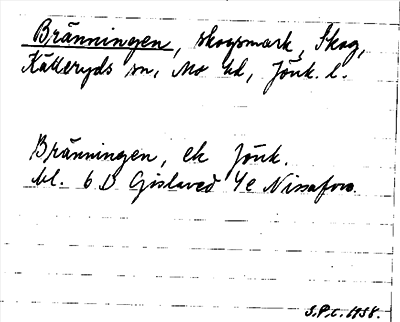 Bränningen, skogsmark, Skog,
Kållerryds sn, Mo hd, Jönk. l.
Bränningen, ek Jönk.
bl. 6 D Gislaved 4e Nissafors.
S.P.c. 1938.